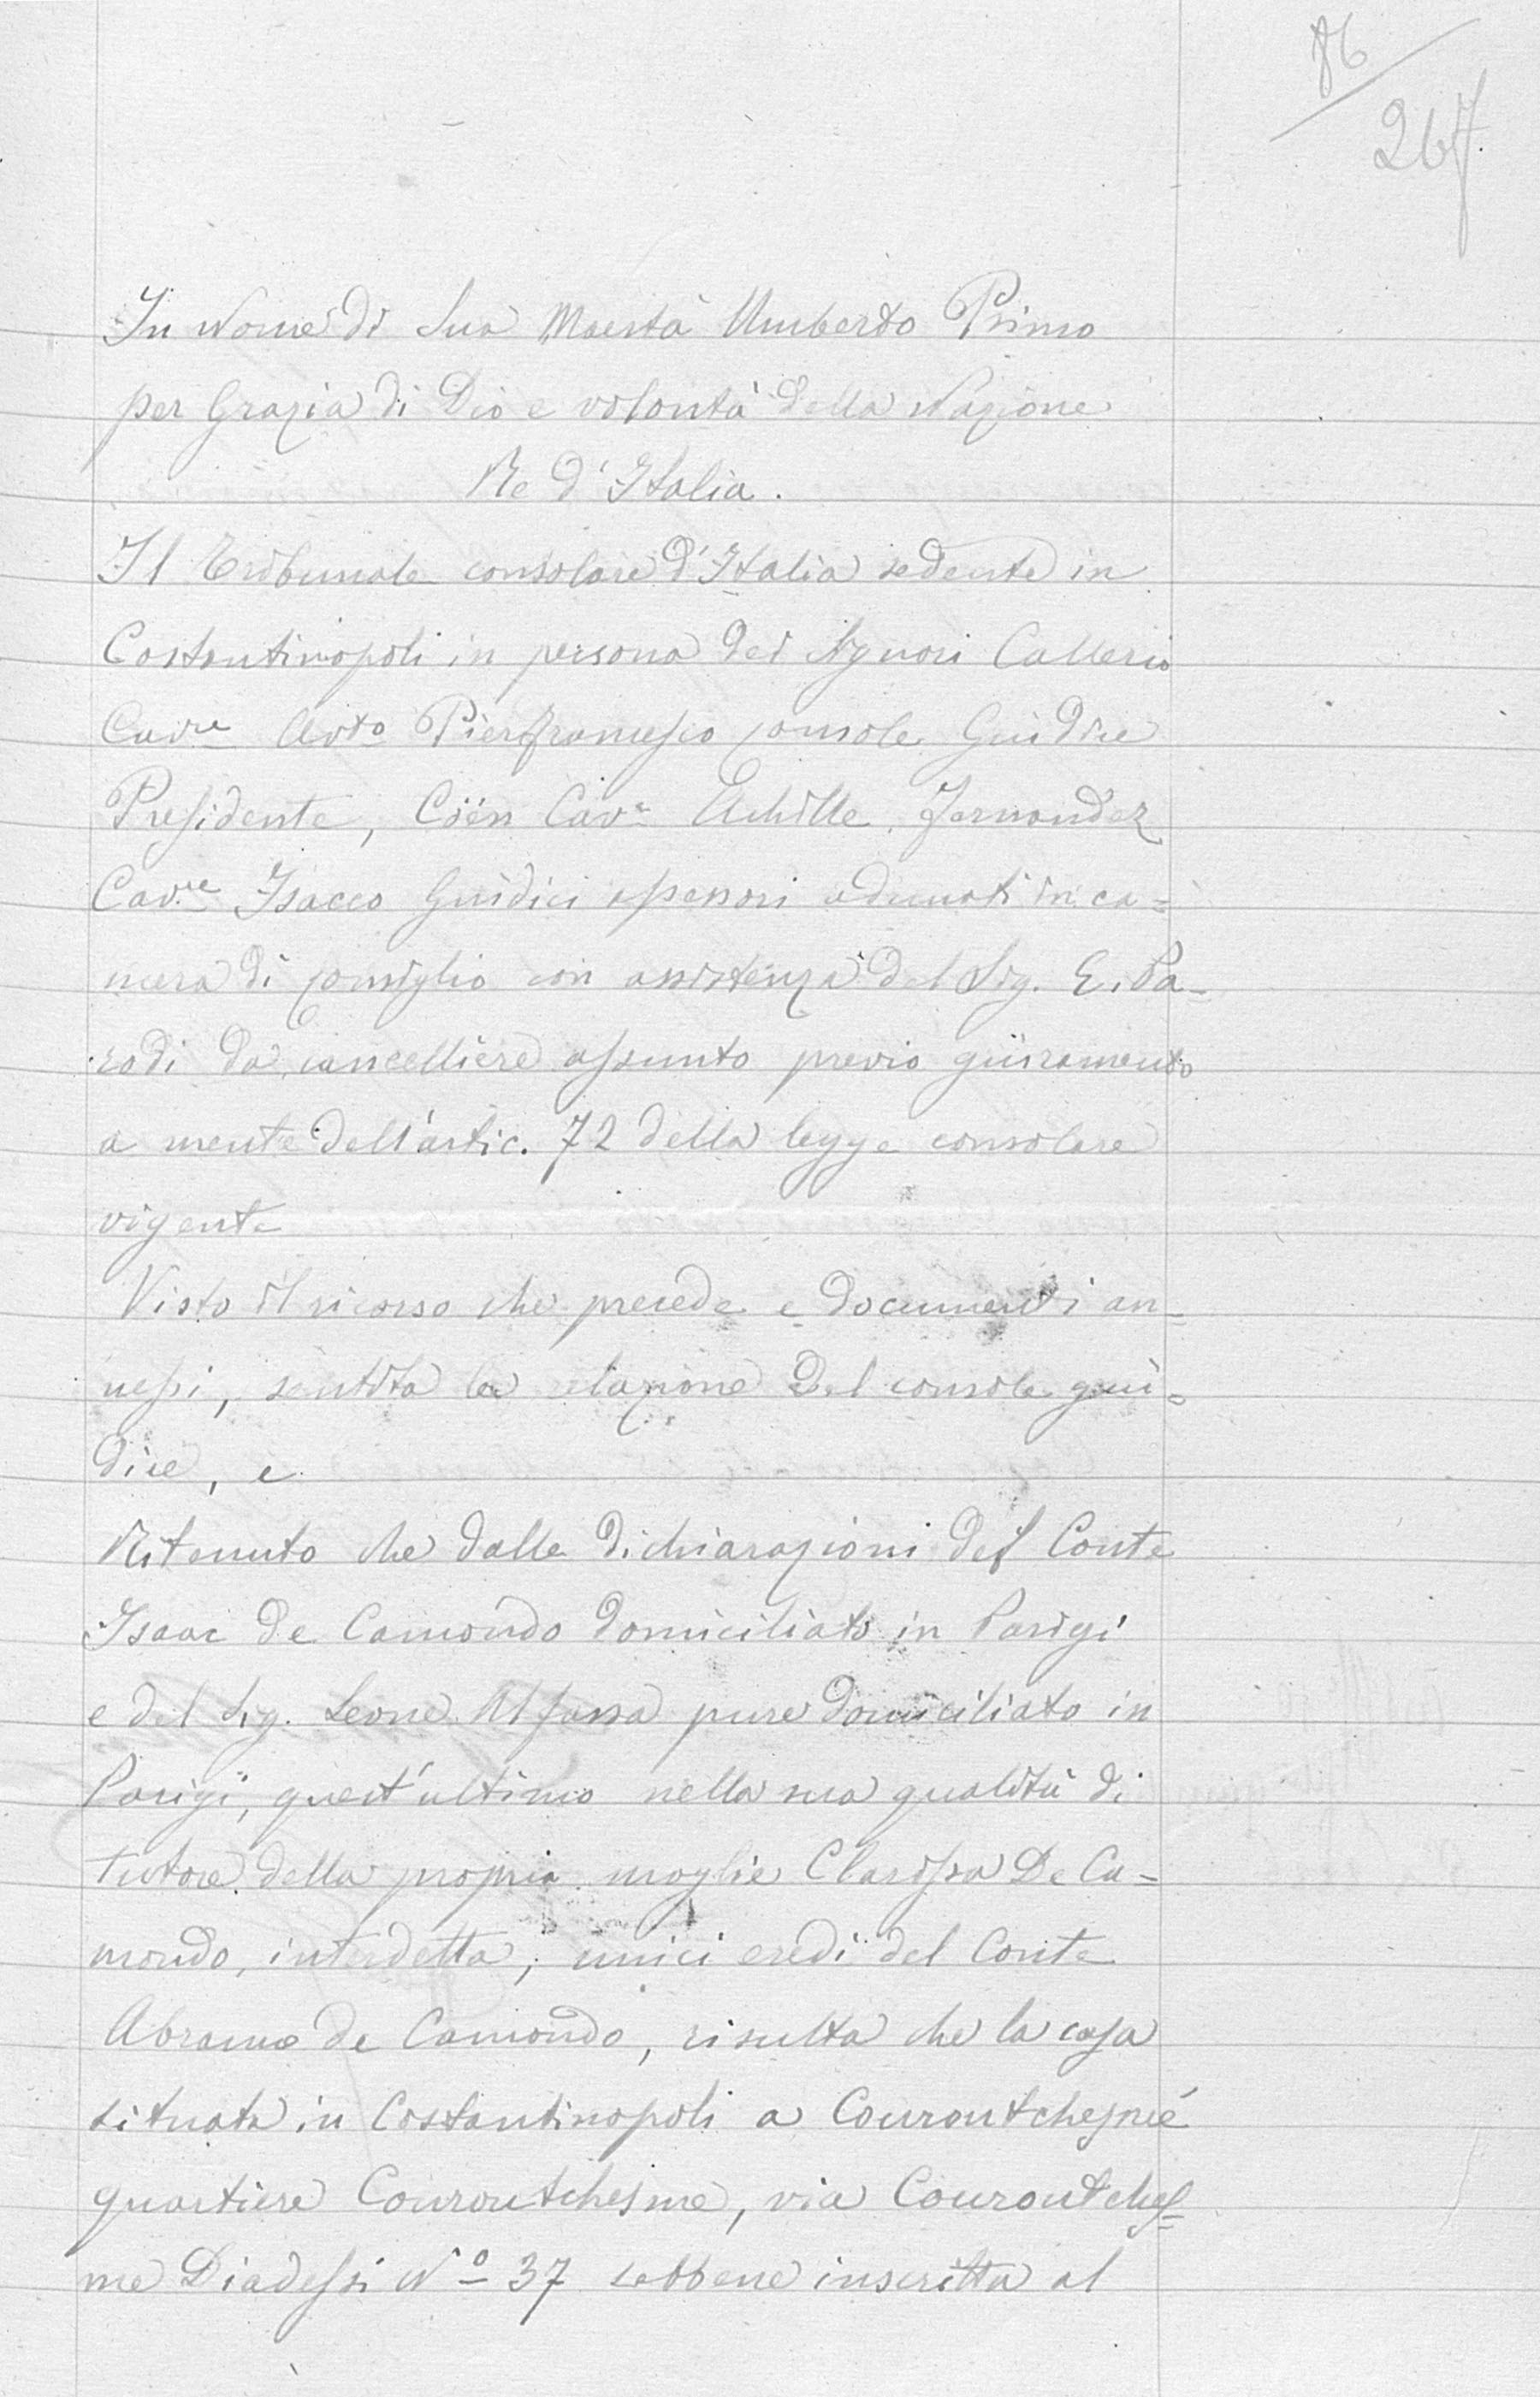 86
267.
In Nome di Sua Maestà Umberto Primo
per Grazia di Dio e volontà della Nazione
Re d'Italia.
Il Tribunale consolare d'Italia sedente in
Costantinopoli in persona dei Signori Callerio
Cavre Avto Pierfrancesco console Giudice
Presidente, Cöen Cavre Achille, Fernandez
Cavre Isacco Giudici assessori adunati in ca=
mera di consiglio con assistenza del Sig. E. Pa=
rodi da cancelliere assunto previo giuramento
a mente dell'artic. 72 della legge consolare
vigente
Visto il ricorso che precede e documenti an=
nessi, sentita la relazione del console giu=
dice, e
Ritenuto che dalle dichiarazioni del Conte
Isaac de Camondo domiciliato in Parigi
e del Sig. Leone Alfassa pure domiciliato in
Parigi, quest'ultimo nella sua qualità di
tutore della propria moglie Clarissa De Ca=
mondo, interdetta, unici eredi del Conte
Abramo de Camondo, risulta che la casa
situata in Costantinopoli a Couroutchesmé
quartiere Couroutchesme, via Couroutches=
me Diadessi No 37 sebbene inscritta al